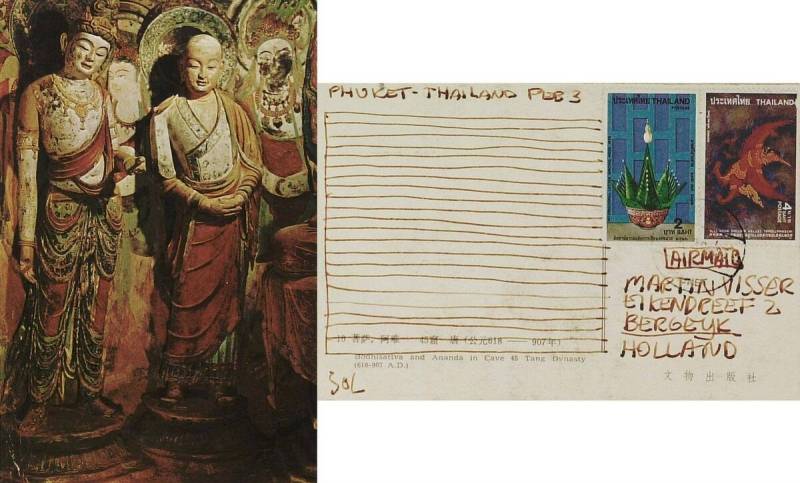 PHUKET-THAILAND FEB 3
ประเทศไทย THAILAND
POSTAGE
2
บาท BAHT
ประเทศไทย THAILAND
4 บาท
BAHT
POSTAGE
AIRMAIL
MARTIN VISSER
EIKENDREEF 2
BERGEYK
HOLLAND
10 菩萨、阿难 45窟 唐(公元618——907年)
Bodhisattva and Ananda in Cave 45 Tang Dynasty
(618-907 A.D.)
SOL
文物出版社